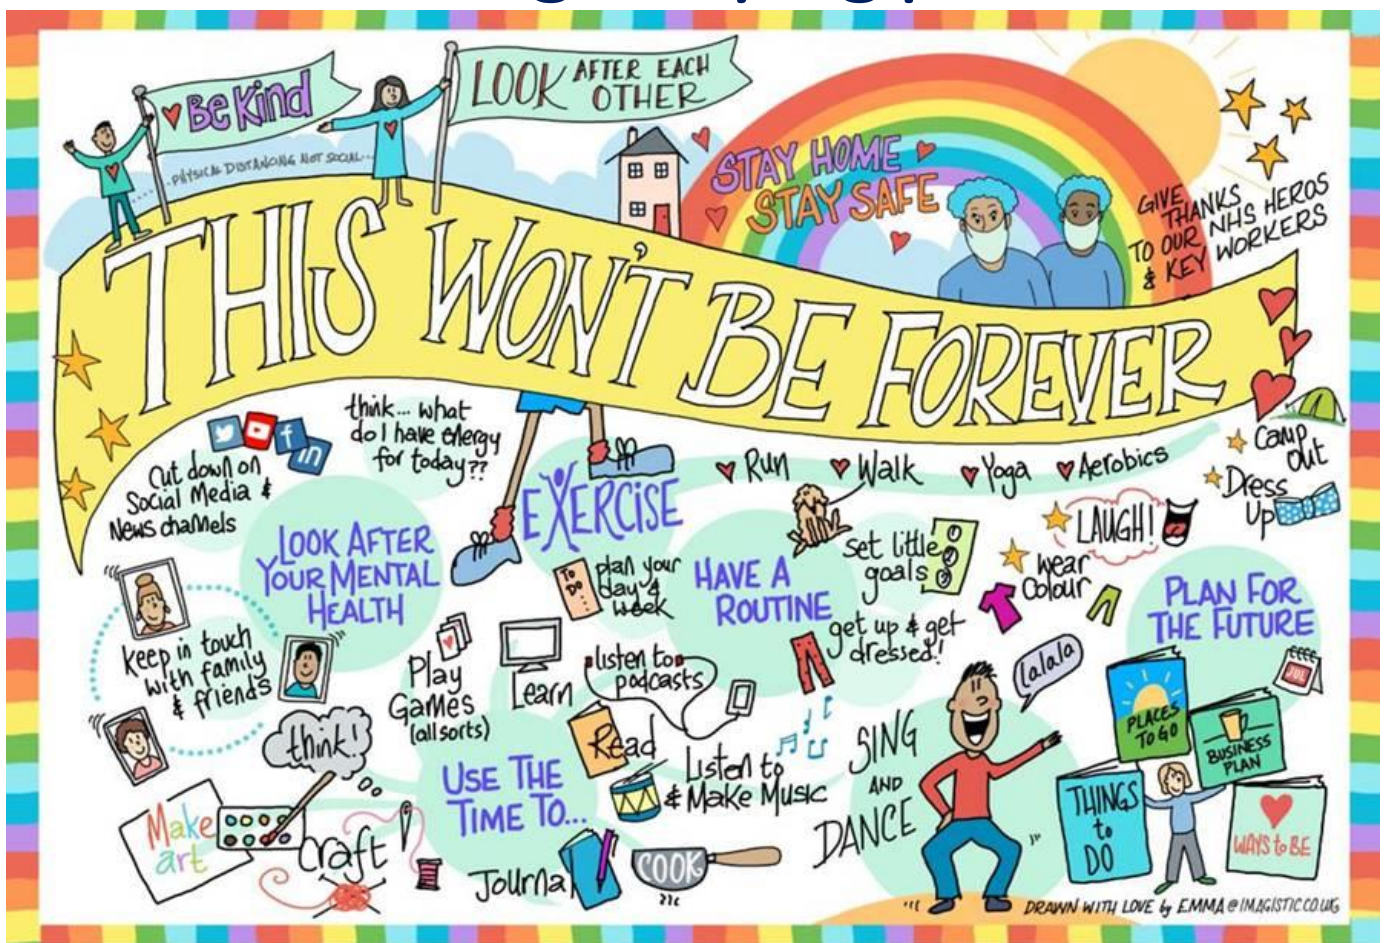 Be Kind
LOOK AFTER EACH
OTHER
...PHYSICAL DISTANCING NOT SOCIAL...
STAY HOME
STAY SAFE
GIVE
THANKS
TO OUR NHS HEROS
& KEY WORKERS
THIS WON'T BE FOREVER
Cut down on
Social Media &
News channels
think... what
do I have energy
for today??
LOOK AFTER
YOUR MENTAL
HEALTH
keep in touch
with family
& friends
EXERCISE
Run
Walk
Yoga
Aerobics
Camp
out
Dress
Up
LAUGH!
wear
Colour
TO
DO...
plan your
day &
week
HAVE A
ROUTINE
set little
goals
get up & get
dressed!
PLAN FOR
THE FUTURE
JUL
PLACES
TO GO
BUSINESS
PLAN
THINGS
to
DO
WAYS to BE
Play
Games
(all sorts)
Learn
listen to
podcasts
think!
USE THE
TIME TO...
Read
Listen to
& Make Music
SING
AND
DANCE
lalala
Make
art
craft
Journal
COOK
DRAWN WITH LOVE by EMMA@IMAGISTIC.CO.UK